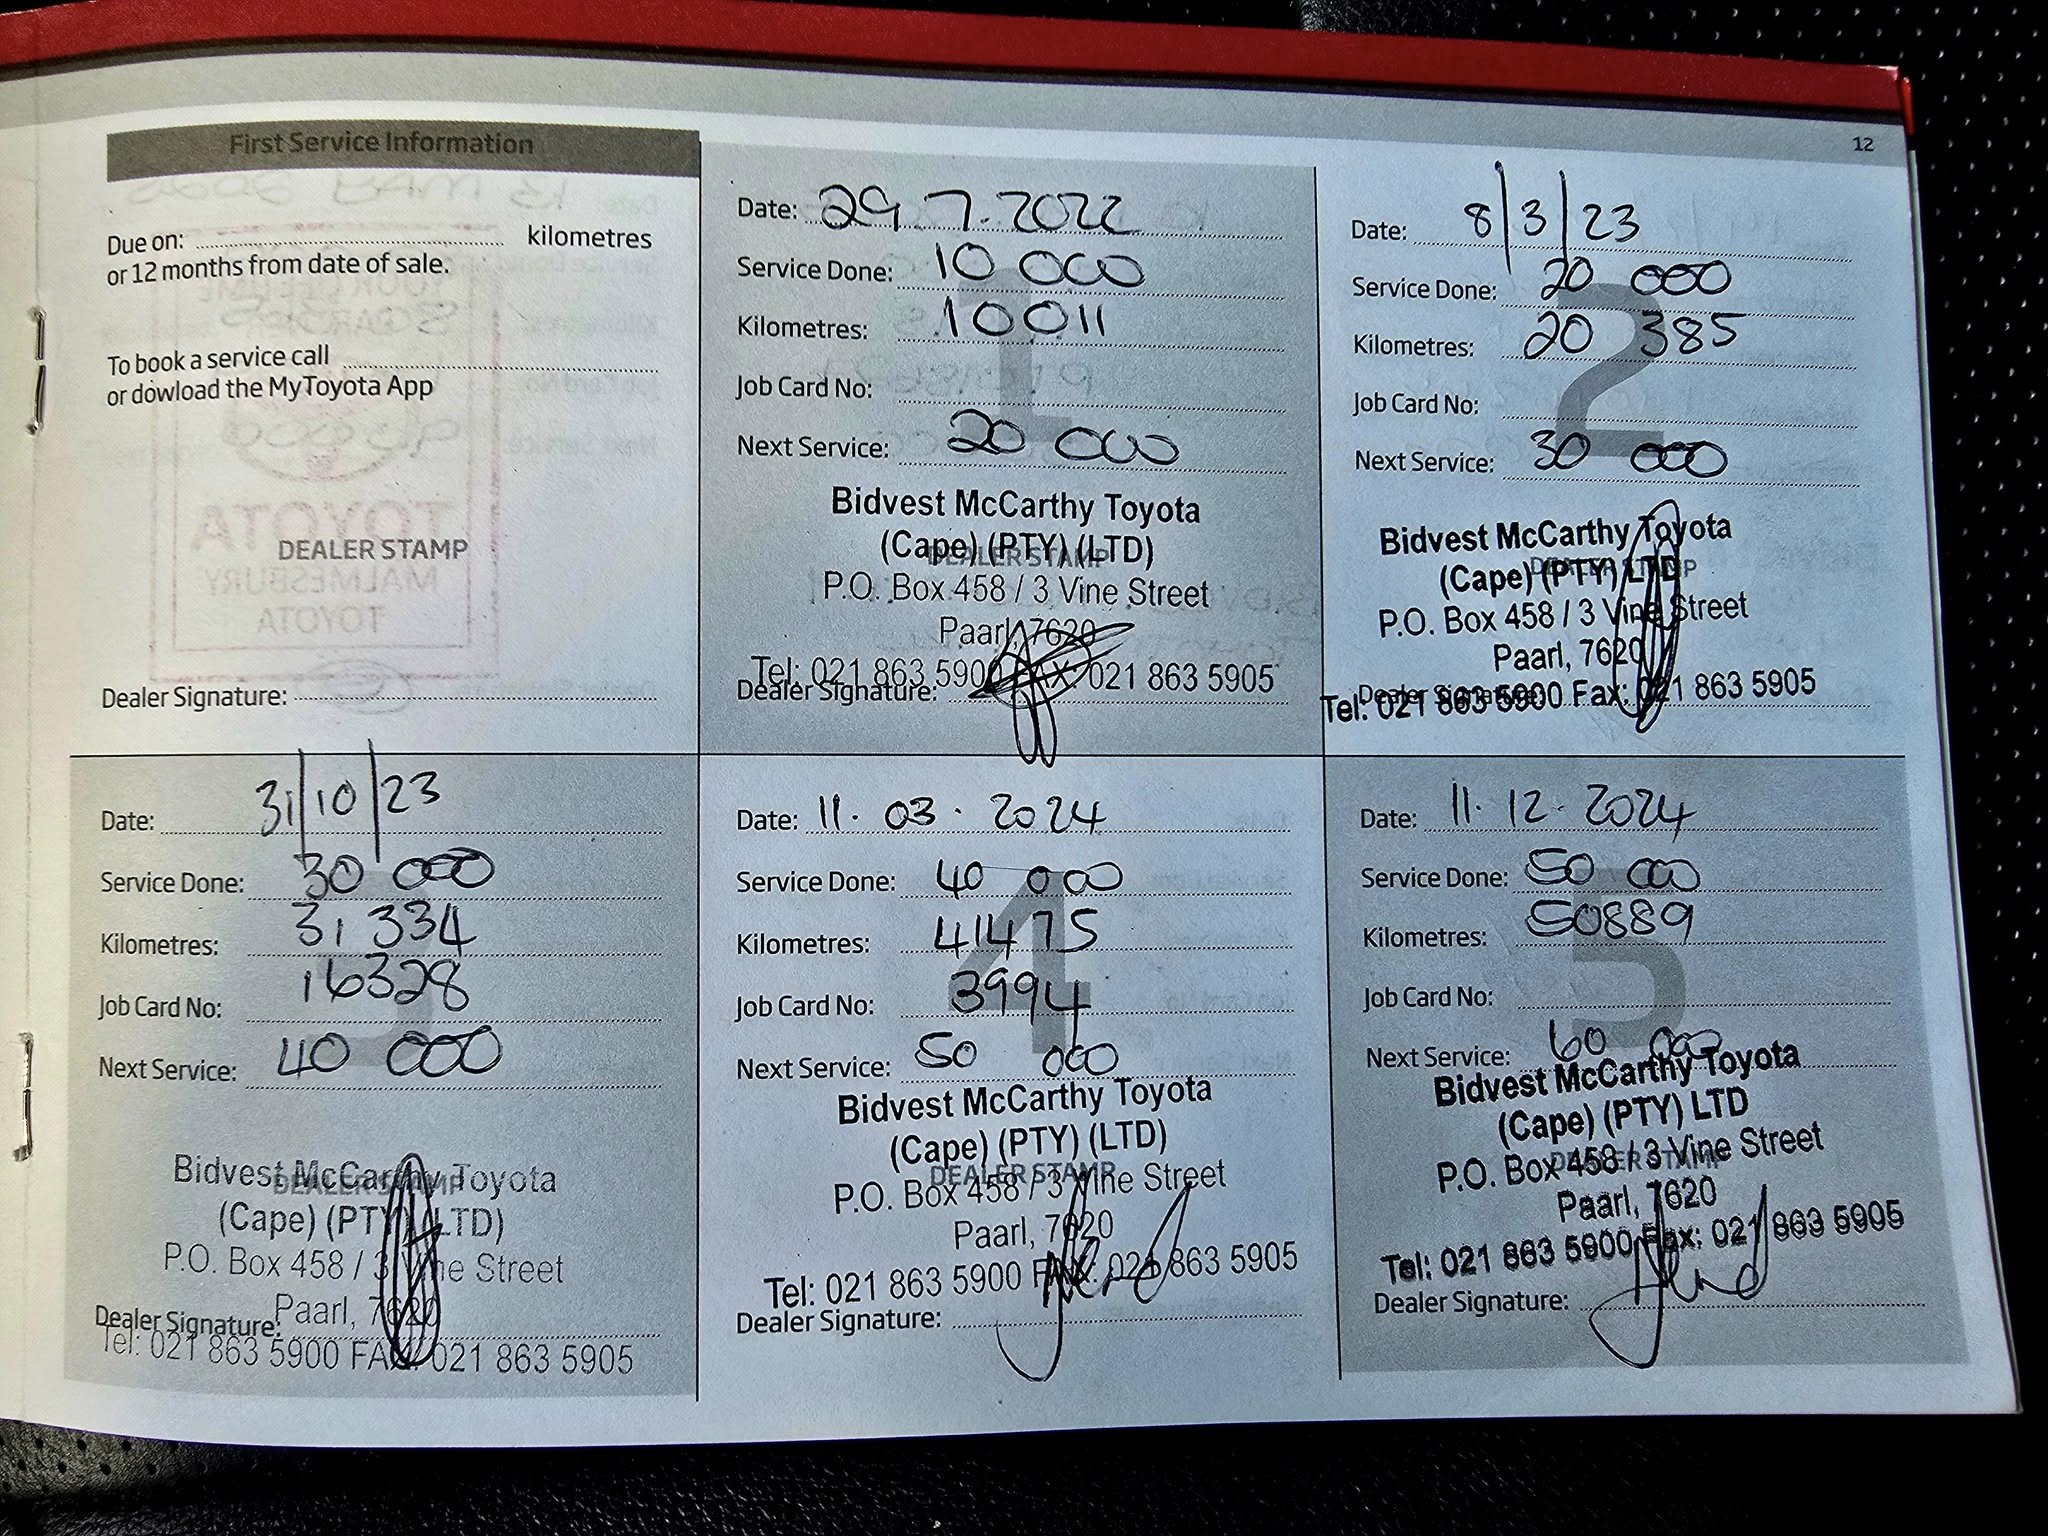 12
First Service Information
Due on: kilometres
or 12 months from date of sale.
To book a service call
or dowload the MyToyota App
DEALER STAMP
Dealer Signature:
Date: 29.7.2022
Service Done: 10 000
Kilometres: 10011
Job Card No:
Next Service: 20 000
Bidvest McCarthy Toyota
(Cape) (PTY) (LTD)
DEALER STAMP
P.O. Box 458 / 3 Vine Street
Paarl, 7620
Tel: 021 863 5900 FAX: 021 863 5905
Dealer Signature:
Date: 8/3/23
Service Done: 20 000
Kilometres: 20 385
Job Card No:
Next Service: 30 000
Bidvest McCarthy Toyota
(Cape) (PTY) LTD
DEALER STAMP
P.O. Box 458 / 3 Vine Street
Paarl, 7620
Dealer Signature:
Tel: 021 863 5900 Fax: 021 863 5905
Date: 31/10/23
Service Done: 30 000
Kilometres: 31 334
Job Card No: 16328
Next Service: 40 000
Bidvest McCarthy Toyota
DEALER STAMP
(Cape) (PTY) (LTD)
P.O. Box 458 / 3 Vine Street
Paarl, 7620
Dealer Signature:
Tel: 021 863 5900 FAX: 021 863 5905
Date: 11.03.2024
Service Done: 40 000
Kilometres: 41475
Job Card No: 3994
Next Service: 50 000
Bidvest McCarthy Toyota
(Cape) (PTY) (LTD)
DEALER STAMP
P.O. Box 458 / 3 Vine Street
Paarl, 7620
Tel: 021 863 5900 FAX: 021 863 5905
Dealer Signature:
Date: 11.12.2024
Service Done: 50 000
Kilometres: 50889
Job Card No:
Next Service: 60 000
Bidvest McCarthy Toyota
(Cape) (PTY) LTD
P.O. Box 458 / 3 Vine Street
DEALER STAMP
Paarl, 7620
Tel: 021 863 5900 Fax: 021 863 5905
Dealer Signature: